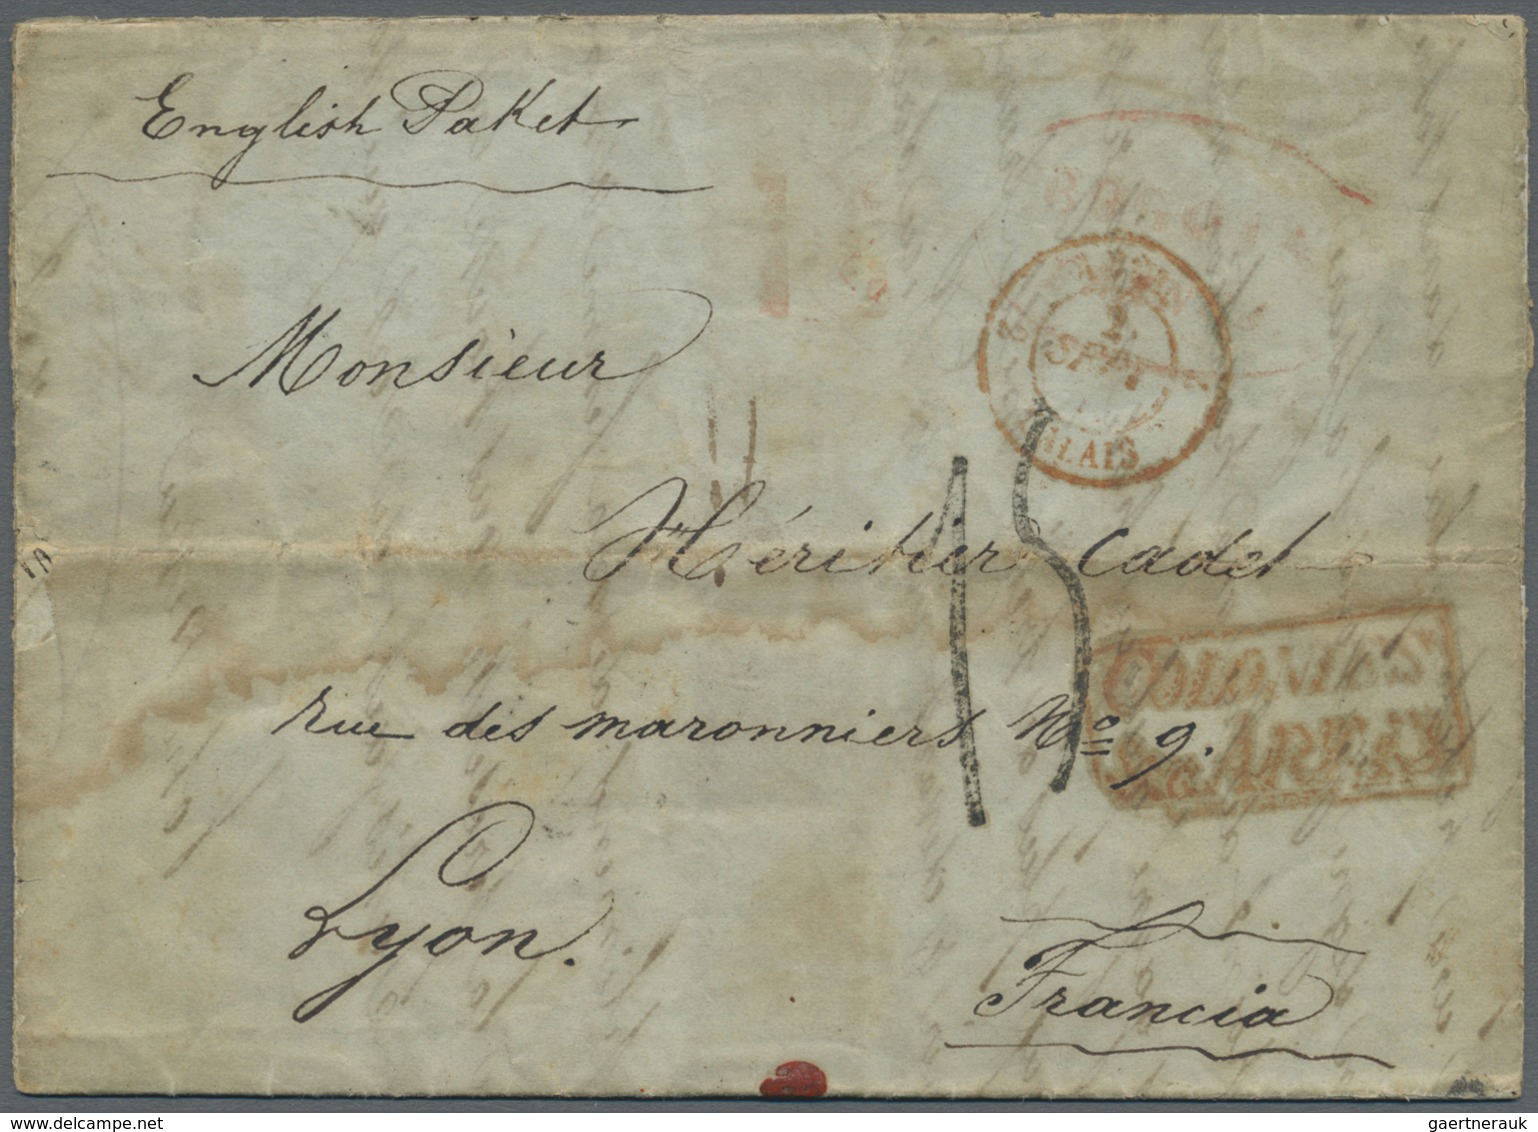 English Paket
BOGOTA
2
SEPT
CALAIS
Monsieur
Héritier Cadet
15
COLONIES
&c. ART.
rue des maronniers No 9.
Lyon.
Francia
gaertnerauk@delcampe